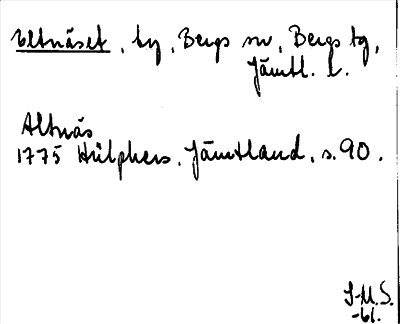 Altnäset, by, Bergs sn, Bergs tg,
Jämtl. l.
Altnäs
1775 Hülphers, Jämtland, s. 90.
S-M.S.
-61.